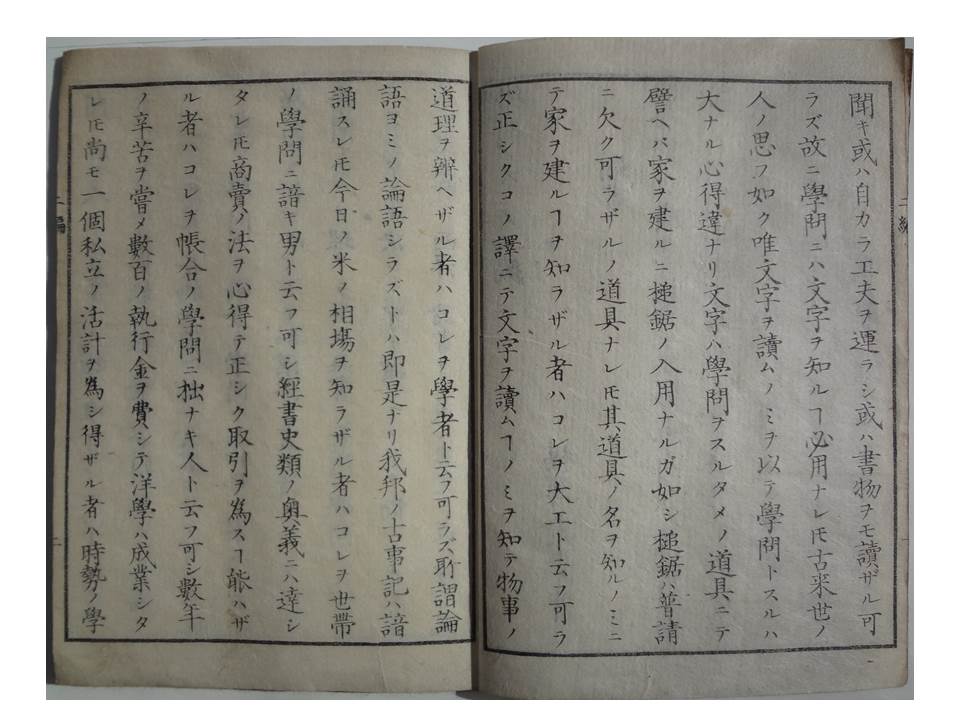 聞キ或ハ自カラ工夫ヲ運ラシ或ハ書物ヲモ讀ザル可
ラズ故ニ學問ニハ文字ヲ知ルヿ必用ナレ𪜈古来世ノ
人ノ思フ如ク唯文字ヲ讀ムノミヲ以テ學問トスルハ
大ナル心得違ナリ文字ハ學問ヲスルタメノ道具ニテ
譬ヘバ家ヲ建ルニ槌鋸ノ入用ナルガ如シ槌鋸ハ普請
ニ欠ク可ラザルノ道具ナレ𪜈其道具ノ名ヲ知ルノミニ
テ家ヲ建ルヿヲ知ラザル者ハコレヲ大工ト云フ可ラ
ズ正シクコノ譯ニテ文字ヲ讀ムヿノミヲ知テ物事ノ
道理ヲ辨ヘザル者ハコレヲ學者ト云フ可ラズ所謂論
語ヨミノ論語シラズトハ即是ナリ我邦ノ古事記ハ諳
誦スレ𪜈今日ノ米ノ相場ヲ知ラザル者ハコレヲ世帯
ノ學問ニ諳キ男ト云フ可シ經書史類ノ奥義ニハ達シ
タレ𪜈商賣ノ法ヲ心得テ正シク取引ヲ為スヿ能ハザ
ル者ハコレヲ帳合ノ學問ニ拙ナキ人ト云フ可シ數年
ノ辛苦ヲ嘗メ數百ノ執行金ヲ費シテ洋學ハ成業シタ
レ𪜈尚モ一個私立ノ活計ヲ為シ得ザル者ハ時勢ノ學
二編